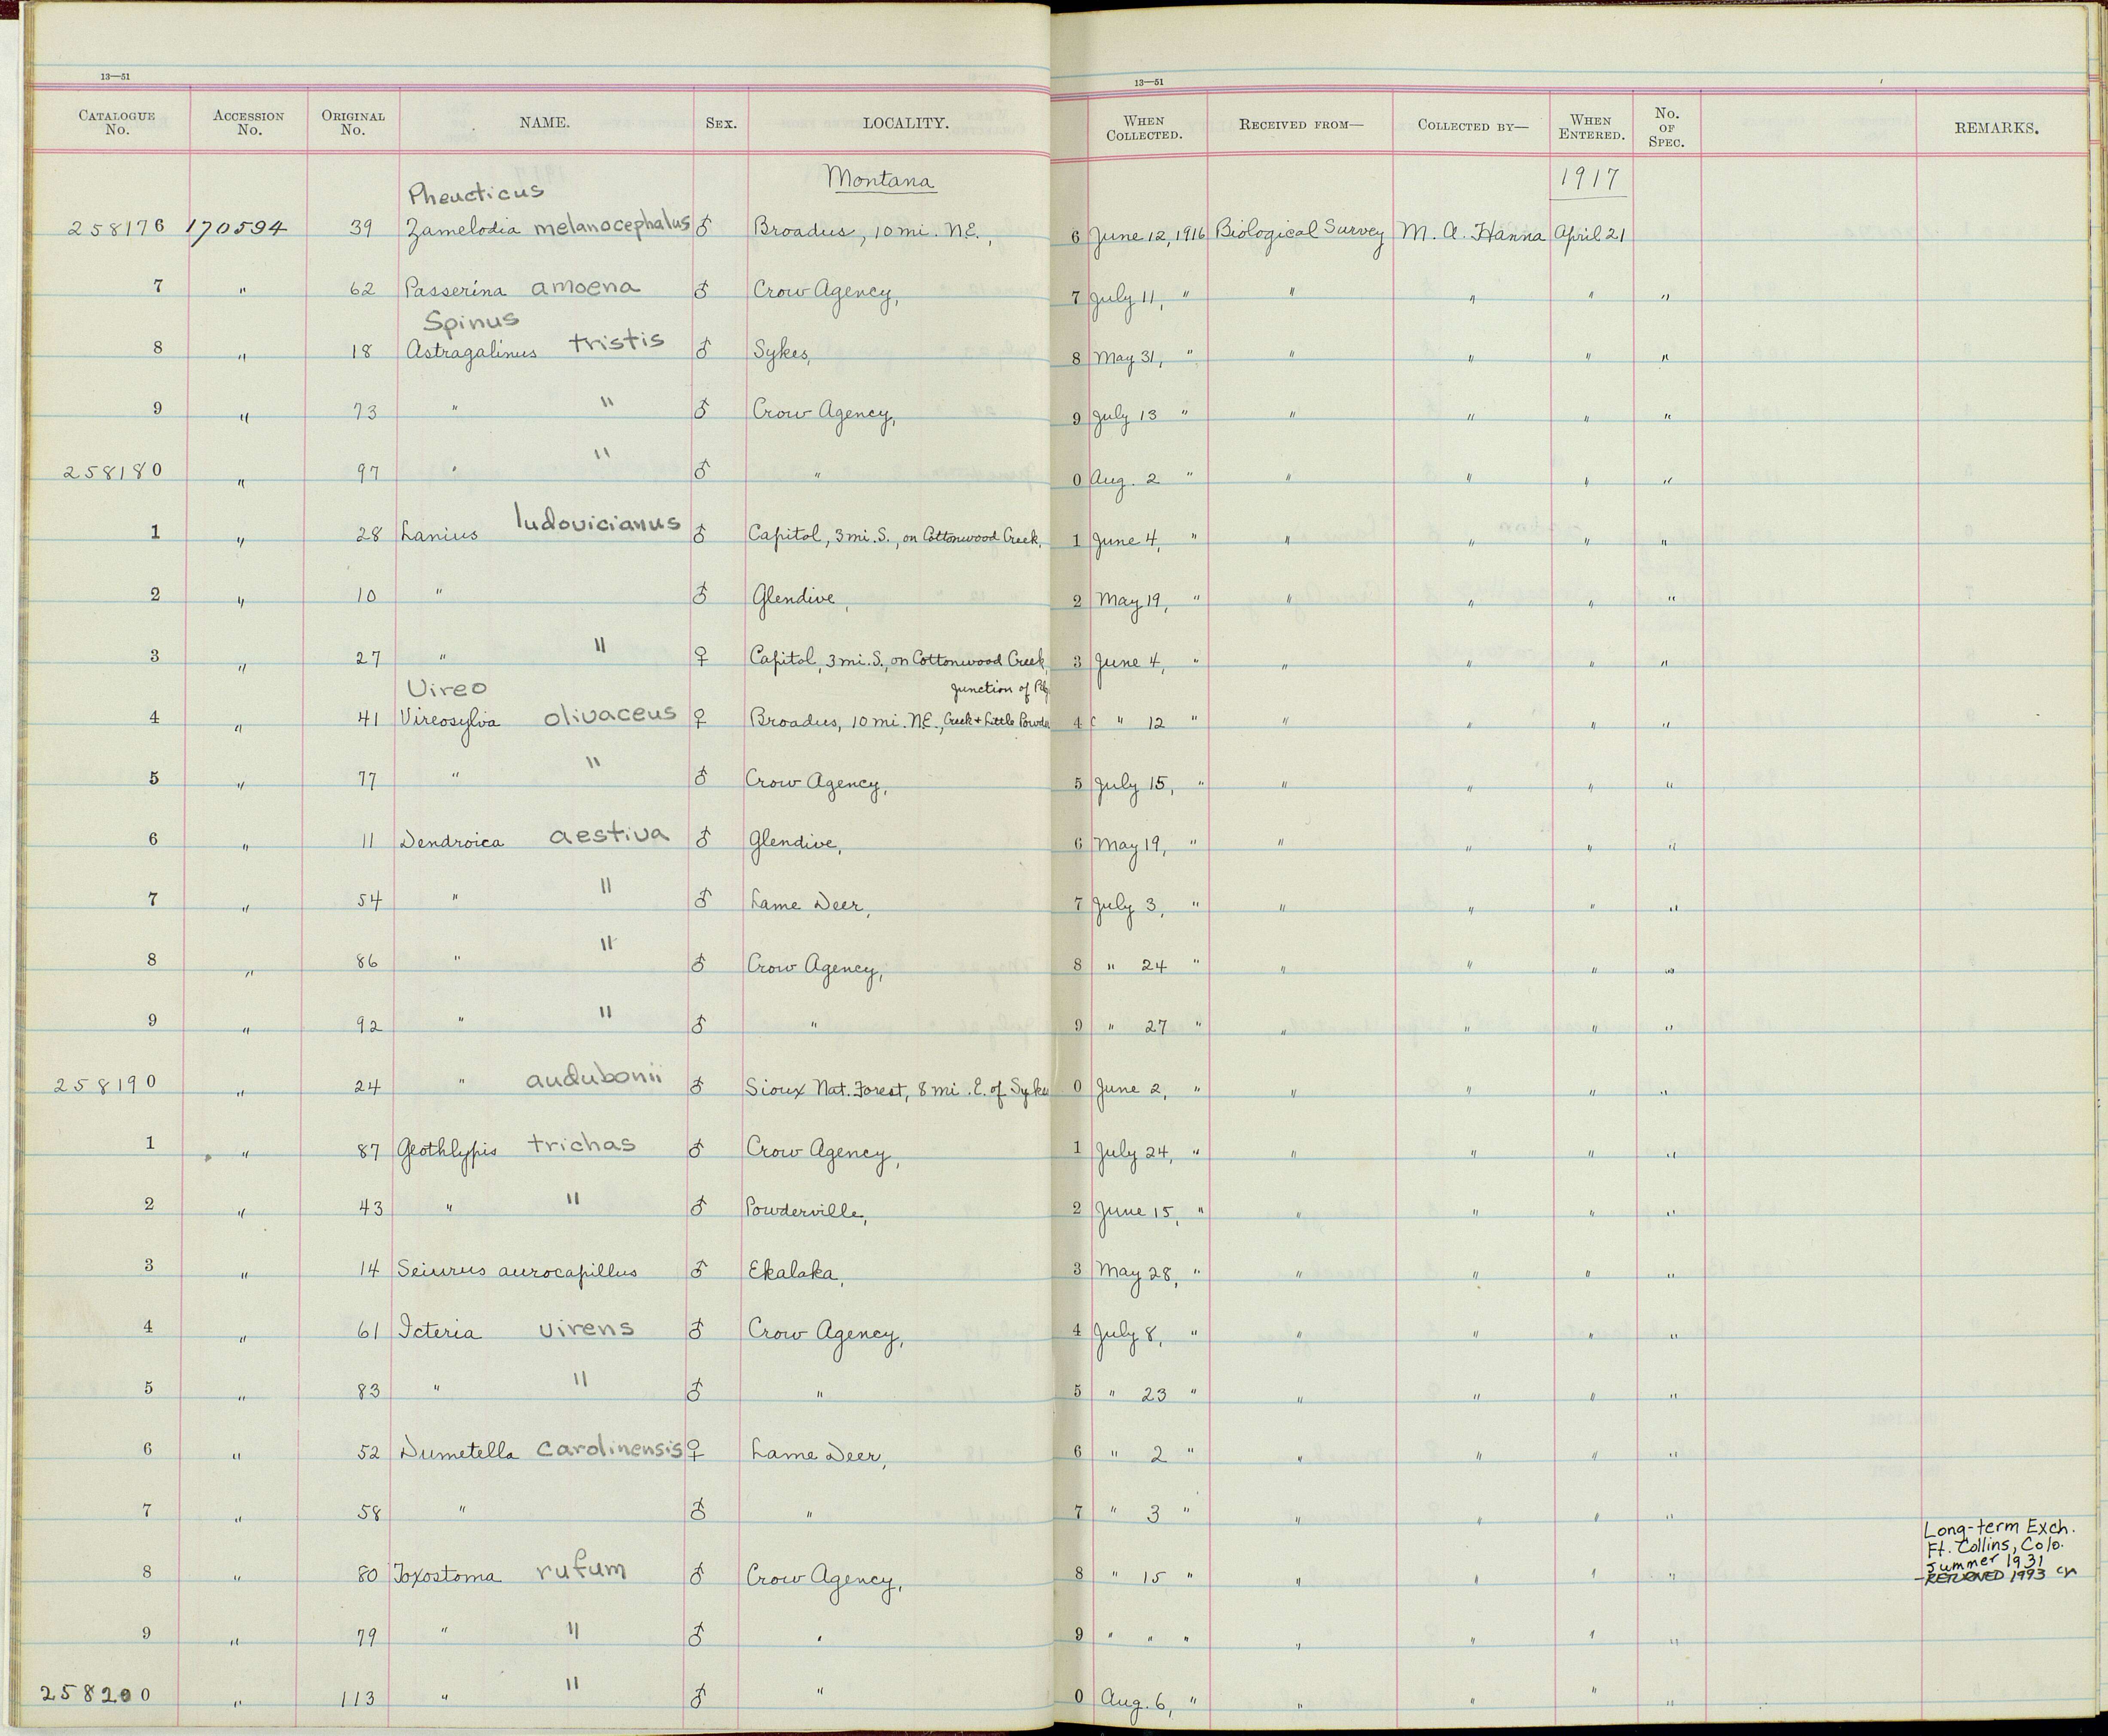 13—51 13—51
CATALOGUE No. ACCESSION No. ORIGINAL No. NAME. SEX. LOCALITY. WHEN COLLECTED. RECEIVED FROM— COLLECTED BY— WHEN ENTERED. No. OF SPEC. REMARKS.
Montana 1917
Pheucticus
258176 170594 39 Zamelodia melanocephalus ♂ Broadus, 10 mi. N.E., 6 June 12, 1916 Biological Survey M. A. Hanna April 21
7 " 62 Passerina amoena ♂ Crow Agency, 7 July 11, " " " " "
Spinus
8 " 18 Astragalinus tristis ♂ Sykes, 8 May 31, " " " " "
9 " 73 " " ♂ Crow Agency, 9 July 13 " " " " "
258180 " 97 " " ♂ " 0 Aug. 2 " " " " "
1 " 28 Lanius ludovicianus ♂ Capitol, 3 mi. S., on Cottonwood Creek, 1 June 4, " " " " "
2 " 10 " ♂ Glendive, 2 May 19, " " " " "
3 " 27 " " ♀ Capitol, 3 mi. S., on Cottonwood Creek, 3 June 4, " " " " "
Vireo Junction of
4 " 41 Vireosylva olivaceus ♀ Broadus, 10 mi. N.E., Creek & Little Powder 4 " 12 " " " " "
5 " 77 " " ♂ Crow Agency, 5 July 15, " " " " "
6 " 11 Dendroica aestiva ♂ Glendive, 6 May 19, " " " " "
7 " 54 " " ♂ Lame Deer, 7 July 3, " " " " "
8 " 86 " " ♂ Crow Agency, 8 " 24 " " " " "
9 " 92 " " ♂ " 9 " 27 " " " " "
258190 " 24 " audubonii ♂ Sioux Nat. Forest, 8 mi. E. of Sykes 0 June 2, " " " " "
1 " 87 Geothlypis trichas ♂ Crow Agency, 1 July 24, " " " " "
2 " 43 " " ♂ Powderville, 2 June 15, " " " " "
3 " 14 Seiurus aurocapillus ♂ Ekalaka, 3 May 28, " " " " "
4 " 61 Icteria virens ♂ Crow Agency, 4 July 8, " " " " "
5 " 83 " " ♂ " 5 " 23 " " " " "
6 " 52 Dumetella carolinensis ♀ Lame Deer, 6 " 2 " " " " "
7 " 58 " ♂ " 7 " 3 " " " " "
Long-term Exch.
Ft. Collins, Colo.
Summer 1931
8 " 80 Toxostoma rufum ♂ Crow Agency, 8 " 15 " " " " " —RETURNED 1993
9 " 79 " " ♂ " 9 " " " " " " "
258200 " 113 " " ♂ " 0 Aug. 6, " " " " "